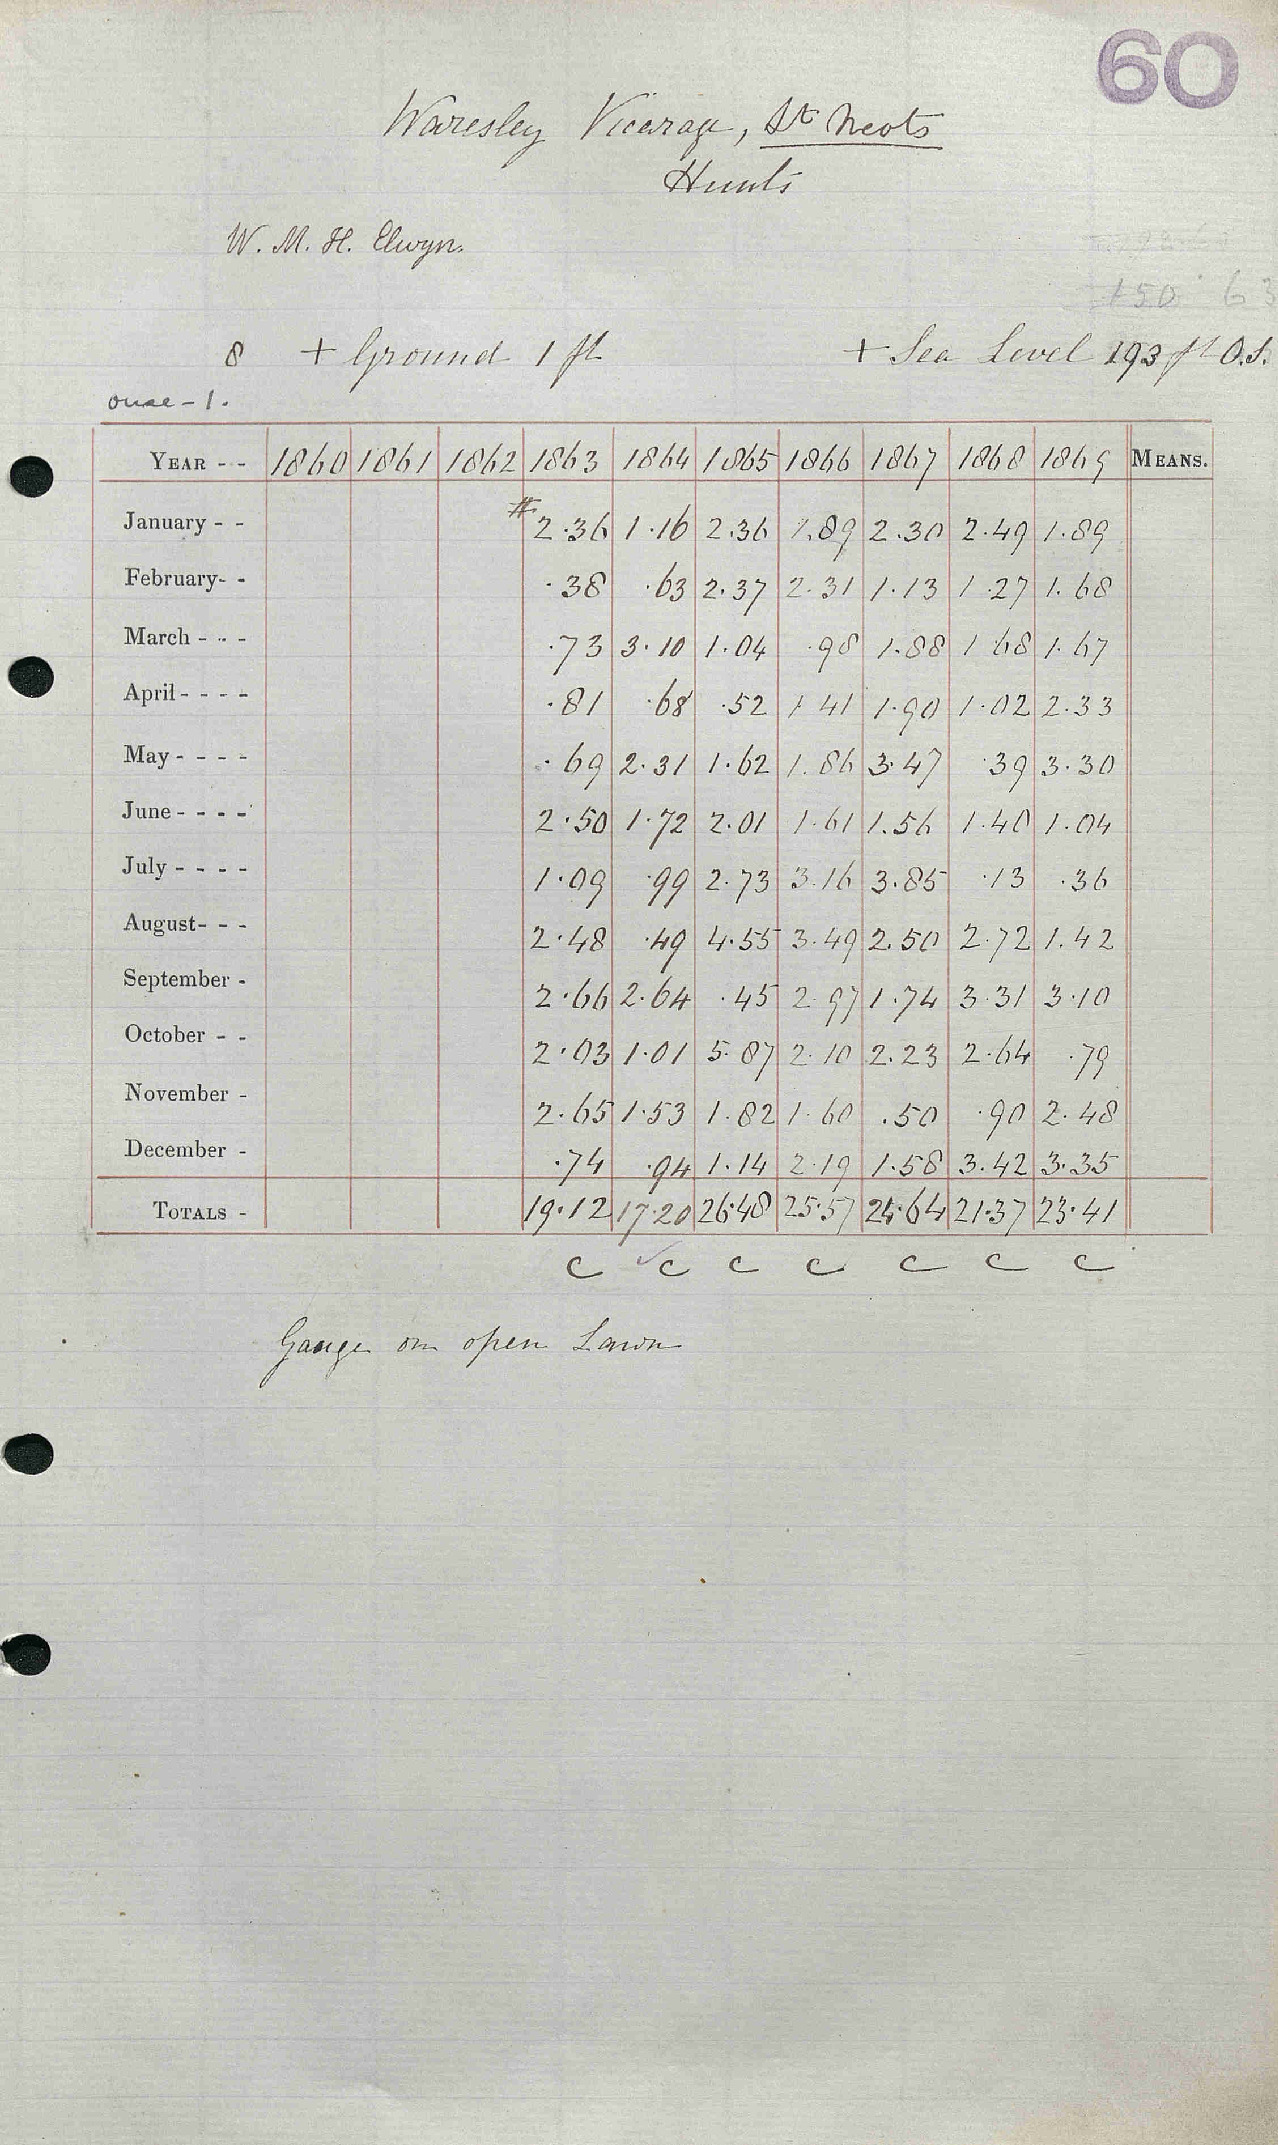 60
Waresley Vicarage, St Neots
Hunts
W. M. H. Elwyn.
150 63
8 + Ground 1 ft + Sea Level 193 ft O.S.
ouse - 1.
YEAR - - 1860 1861 1862 1863 1864 1865 1866 1867 1868 1869 MEANS.
January - - # 2.36 1.16 2.36 1.89 2.30 2.49 1.89
February- - .38 .63 2.37 2.31 1.13 1.27 1.68
March - - - .73 3.10 1.04 .98 1.88 1 68 1.67
April - - - - .81 .68 .52 1 41 1.90 1.02 2.33
May - - - - .69 2.31 1.62 1.86 3.47 .39 3.30
June - - - - 2.50 1.72 2.01 1.61 1.56 1.40 1.04
July - - - - 1.09 .99 2.73 3.16 3.85 .13 .36
August- - - 2.48 .49 4.55 3.49 2.50 2.72 1.42
September - 2.66 2.64 .45 2.97 1.74 3.31 3.10
October - - 2.03 1.01 5.87 2.10 2.23 2.64 .79
November - 2.65 1.53 1.82 1.60 .50 .90 2.48
December - .74 .94 1.14 2.19 1.58 3.42 3.35
TOTALS - 19.12 17.20 26.48 25.57 24.64 21.37 23.41
C C C C C C C
Gauge on open Lawn